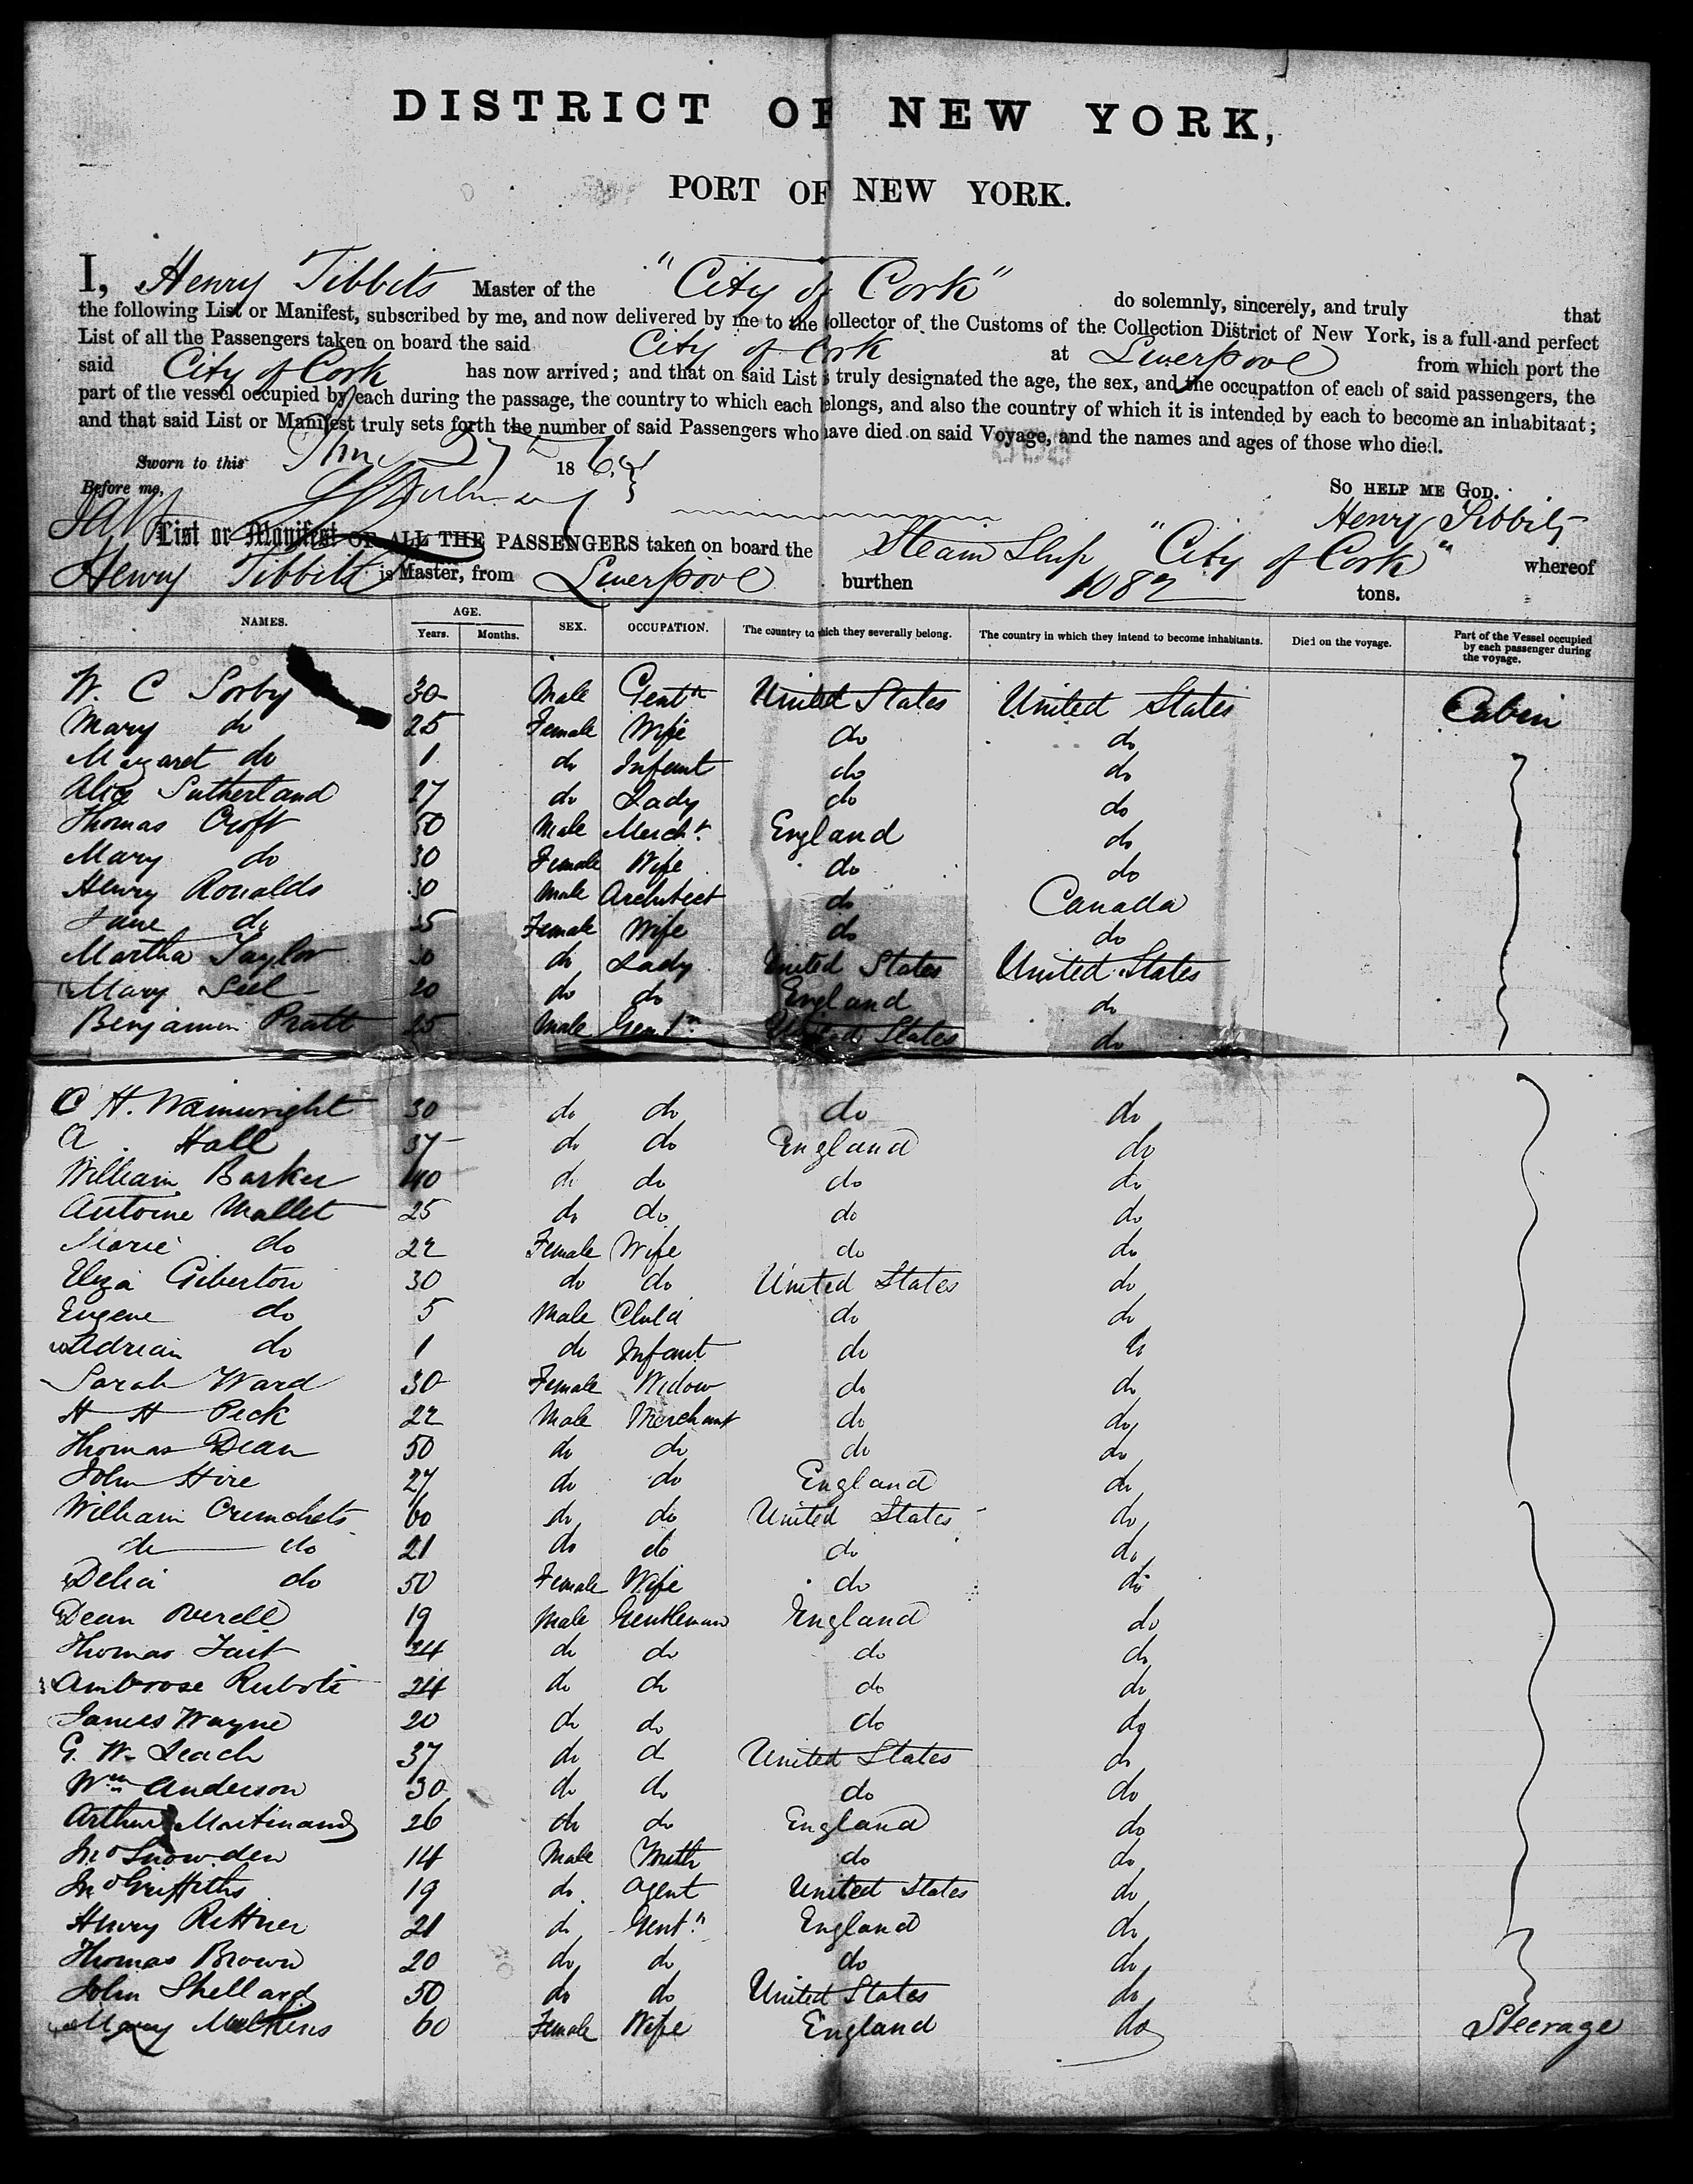 DISTRICT OF NEW YORK,
PORT OF NEW YORK.
I, Henry Tibbits Master of the "City of Cork" do solemnly, sincerely, and truly that
the following List or Manifest, subscribed by me, and now delivered by me to the Collector of the Customs of the Collection District of New York, is a full and perfect
List of all the Passengers taken on board the said City of Cork at Liverpool from which port the
said City of Cork has now arrived; and that on said List is truly designated the age, the sex, and the occupation of each of said passengers, the
part of the vessel occupied by each during the passage, the country to which each belongs, and also the country of which it is intended by each to become an inhabitant;
and that said List or Manifest truly sets forth the number of said Passengers who have died on said Voyage, and the names and ages of those who died.
Sworn to this 27 186
So HELP ME GOD.
Before me, Henry Tibbits
List or Manifest OF ALL THE PASSENGERS taken on board the Steam Ship "City of Cork" whereof
Henry Tibbits is Master, from Liverpool burthen 1082 tons.
NAMES. AGE. Years. Months. SEX. OCCUPATION. The country to which they severally belong. The country in which they intend to become inhabitants. Died on the voyage. Part of the Vessel occupied by each passenger during the voyage.
W. C Sorby 30 Male Gentn United States United States Cabin
Mary do 25 Female Wife do do
Margaret do 1 do Infant do do
Alice Sutherland 27 do Lady do do
Thomas Croft 50 Male Mercht England do
Mary do 30 Female Wife do do
Henry Ronalds 30 Male Architect do Canada
Jane do 35 Female Wife do do
Martha Taylor 30 do Lady United States United States
Mary Seel 20 do do England do
Benjamin Pratt 25 Male Gentn United States do
C H. Wainwright 30 do do do do
A Hall 37 do do England do
William Barker 40 do do do do
Antoine Mallet 25 do do do do
Marie do 22 Female Wife do do
Eliza Giberton 30 do do United States do
Eugene do 5 Male Child do do
Adrian do 1 do Infant do do
Sarah Ward 30 Female Widow do do
H H Peck 22 Male Merchant do do
Thomas Dean 50 do do do do
John Hire 27 do do England do
William 60 do do United States do
do do 21 do do do do
Delia do 50 Female Wife do do
Dean 19 Male Gentleman England do
Thomas Tait 24 do do do do
Ambrose 24 do do do do
James Wayne 20 do do do do
G. W. Leach 37 do d United States do
Wm Anderson 30 do do do do
Arthur Martinand 26 do do England do
Jno Snowden 14 Male do do
Jno Griffiths 19 do Agent United States do
Henry Rittner 21 do Gentn England do
Thomas Brown 20 do do do do
John Shellard 50 do do United States do
Mary 60 Female Wife England do Steerage